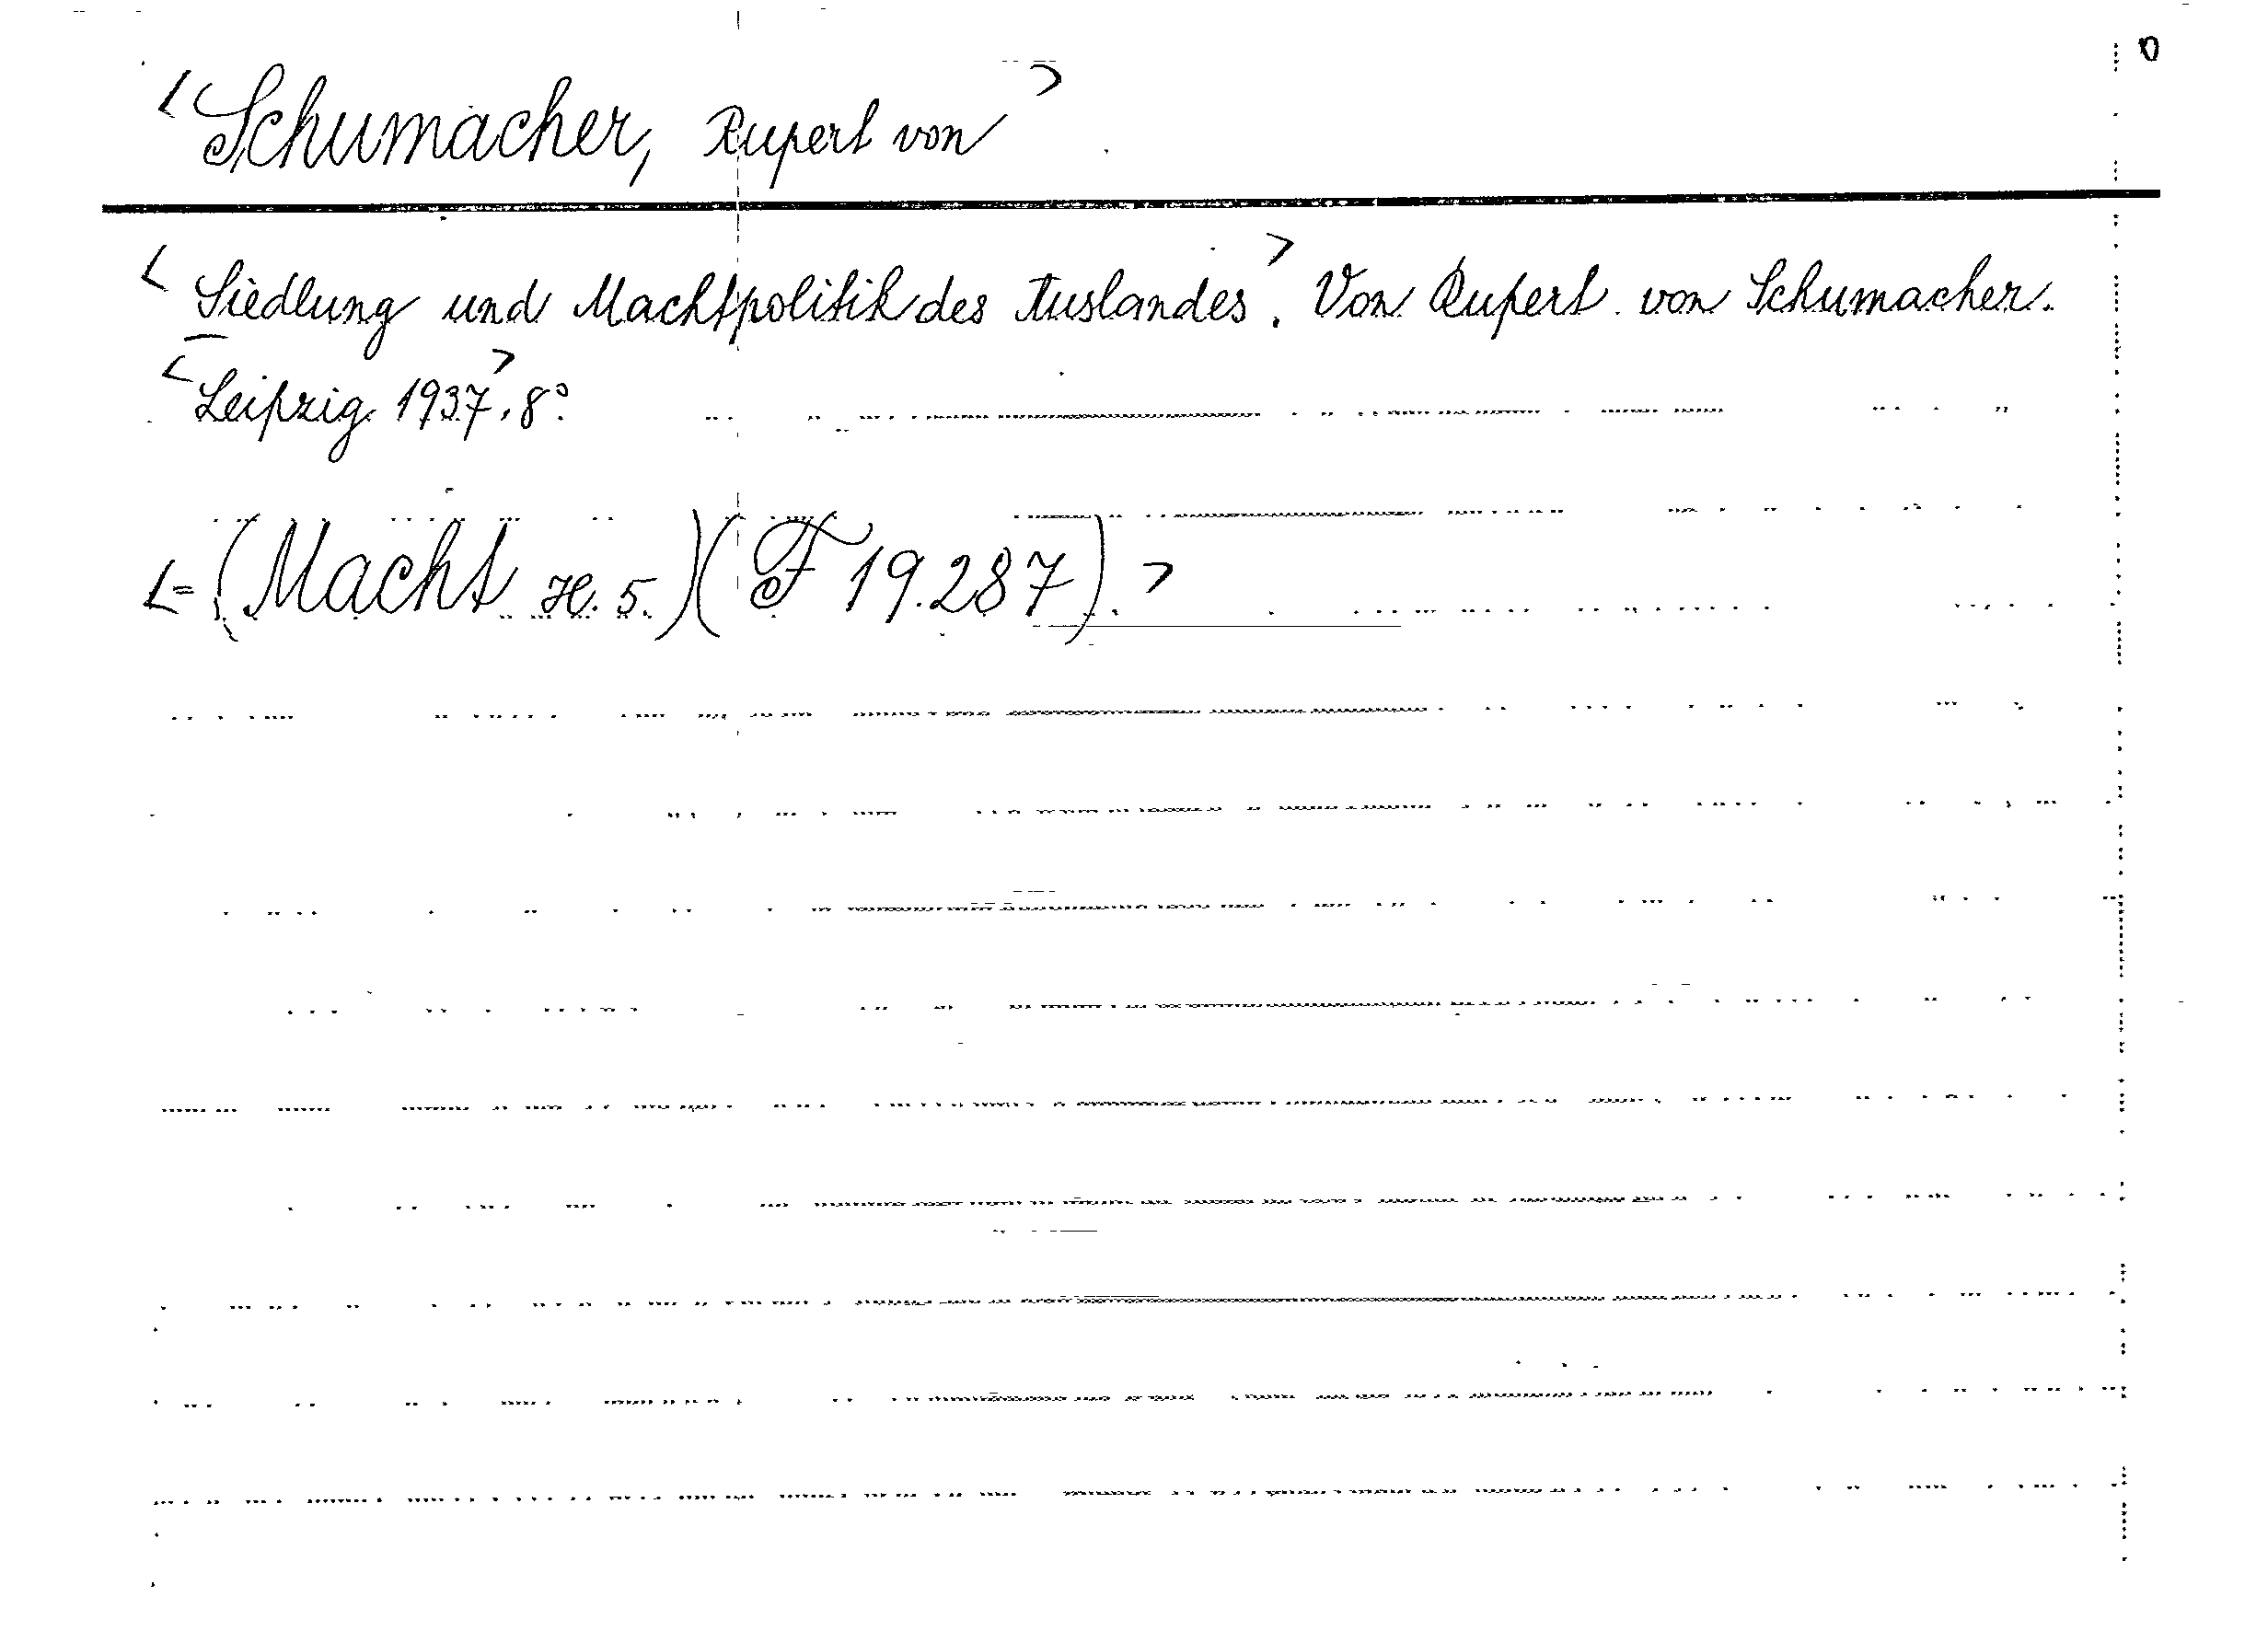 0
<Schumacher, Rupert von>
<Siedlung und Machtpolitik des Auslandes>. Von Rupert von Schumacher.
<Leipzig 1937>. 8°.
<=(Macht H. 5.)(F 19.287).>